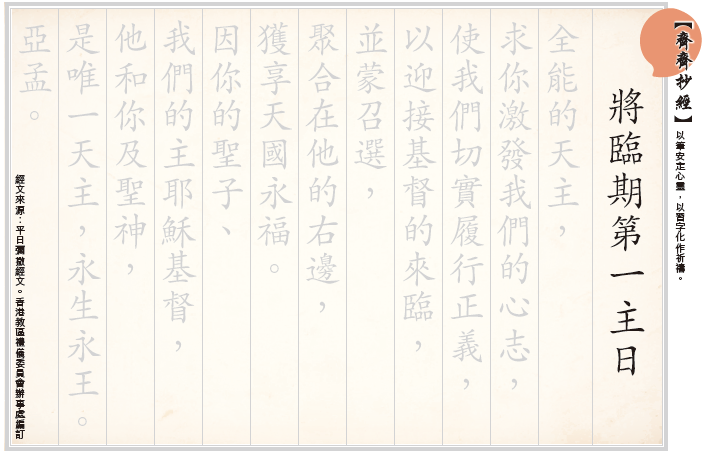 【齊齊抄經】
以筆安定心靈，以習字化作祈禱。
將臨期第一主日
全能的天主，
求你激發我們的心志，
使我們切實履行正義，
以迎接基督的來臨，
並蒙召選，
聚合在他的右邊，
獲享天國永福。
因你的聖子、
我們的主耶穌基督，
他和你及聖神，
是唯一天主，永生永王。
亞孟。
經文來源：平日彌撒經文。香港教區禮儀委員會辦事處編訂